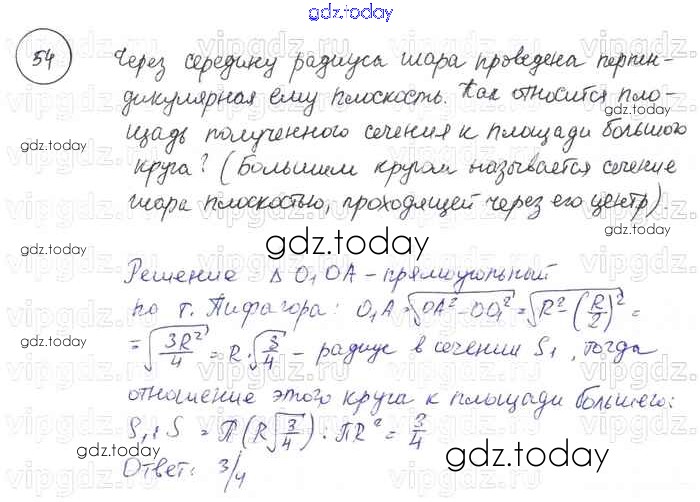 gdz.today
54
Через середину радиуса шара проведена перпен-
дикулярная ему плоскость. Как относится пло-
щадь полученного сечения к площади большого
круга? (Большим кругом называется сечение
шара плоскостью, проходящей через его центр).
gdz.today
Решение Δ O₁OA – прямоугольный
по т. Пифагора: O₁A = √(OA² – OO₁²) = √(R² – (R/2)²) =
= √(3R²/4) = R·√(3/4) – радиус в сечении S₁, тогда
отношение этого круга к площади большего:
S₁ : S = π(R√(3/4)) : πR² = 3/4
Ответ: 3/4
gdz.today
gdz.today
gdz.today
gdz.today
gdz.today
gdz.today
vipgdz.ru